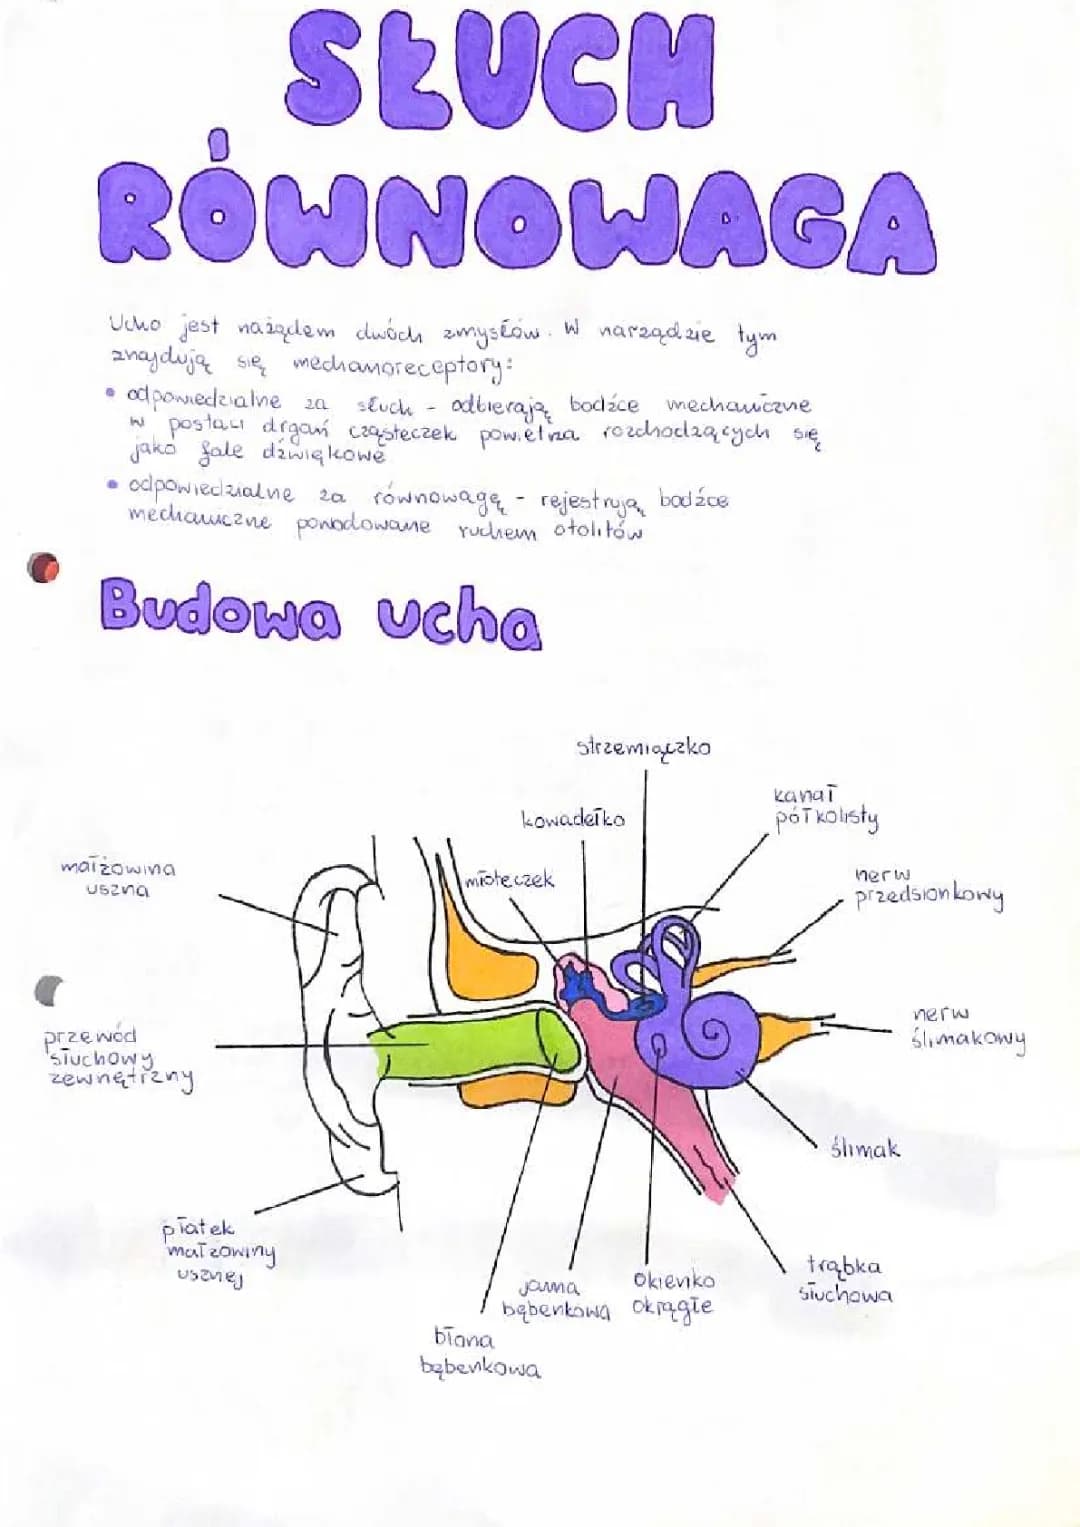 SŁUCH
RÓWNOWAGA
Ucho jest nażądem dwóch zmysłów. W narządzie tym
znajdują się mechanoreceptory:
• odpowiedzialne za słuch - odbierają bodźce mechaniczne
w postaci drgań cząsteczek powietrza rozchodzących się
jako fale dźwiękowe
• odpowiedzialne za równowagę - rejestrują bodźce
mechaniczne powodowane ruchem otolitów
Budowa ucha
strzemiączko
kanał
półkolisty
kowadełko
małżowina
uszna
młoteczek
nerw
przedsionkowy
przewód
słuchowy
zewnętrzny
nerw
ślimakowy
ślimak
płatek
małżowiny
usznej
trąbka
słuchowa
jama
bębenkowa
okienko
okrągłe
błona
bębenkowa